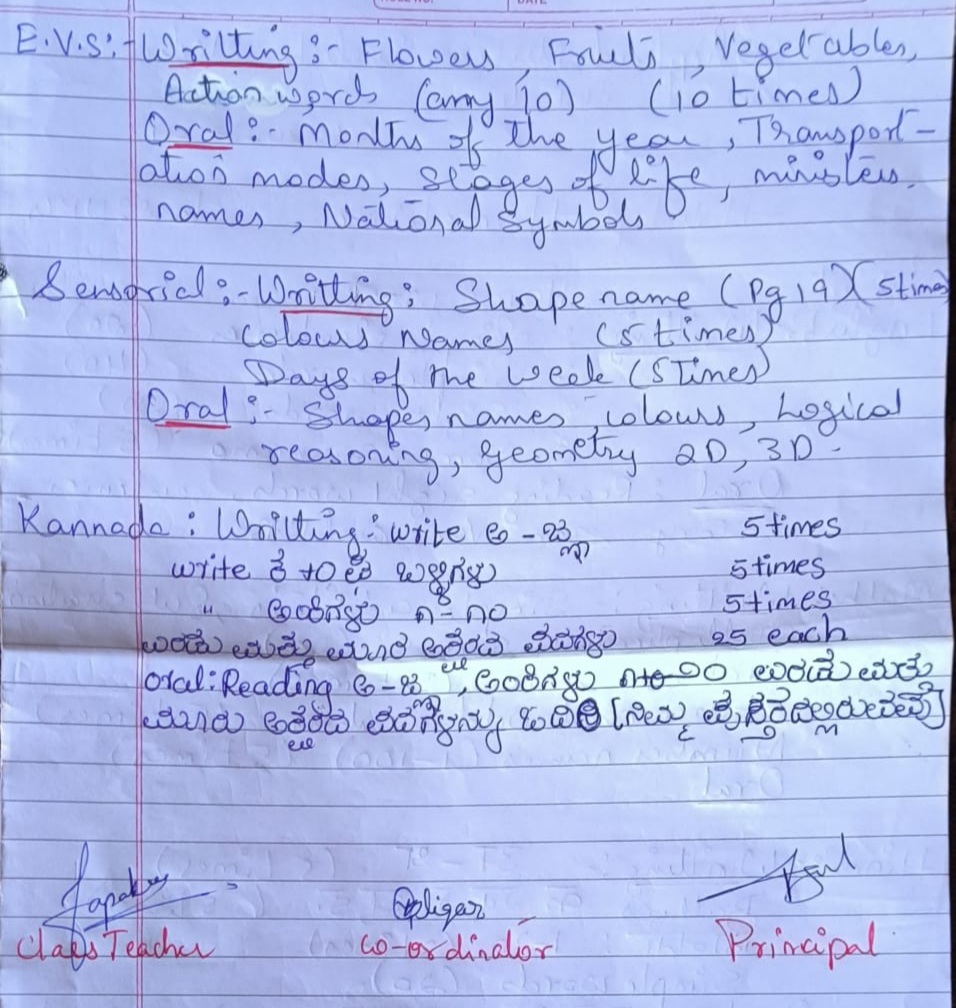 E.V.S:- Writting :- Flowers, Fruits, Vegetables,
Action words (any 10) (10 times)
Oral :- Months of the year, Transport-
ation modes, Stages of life, ministers
names, National Symbols
Sensorial :- Writting : Shape name (Pg 19) (5 times)
Colours Names (5 times)
Days of the week (5 Times)
Oral :- Shapes names, colours, Logical
reasoning, geometry 2D, 3D -
Kannada : Writting : write ಅ - ಜ್ಞ 5 times
write ಕ to ಳ ಬಳ್ಳಿಗಳು 5 times
" ಅಂಕಿಗಳು ೧ - ೧೦ 5 times
ಎರಡು ಮತ್ತು ಮೂರು ಅಕ್ಷರದ ಪದಗಳು 25 each
Oral : Reading ಅ - ಜ್ಞ, ಅಂಕಿಗಳು ೧ to ೧೦ ಎರಡು ಮತ್ತು
ಮೂರು ಅಕ್ಷರದ ಪದಗಳನ್ನು ಓದಿರಿ [ನಿಮ್ಮ ಪುಸ್ತಕದಲ್ಲಿರುವಂತೆ]
Class Teacher Co-ordinator Principal